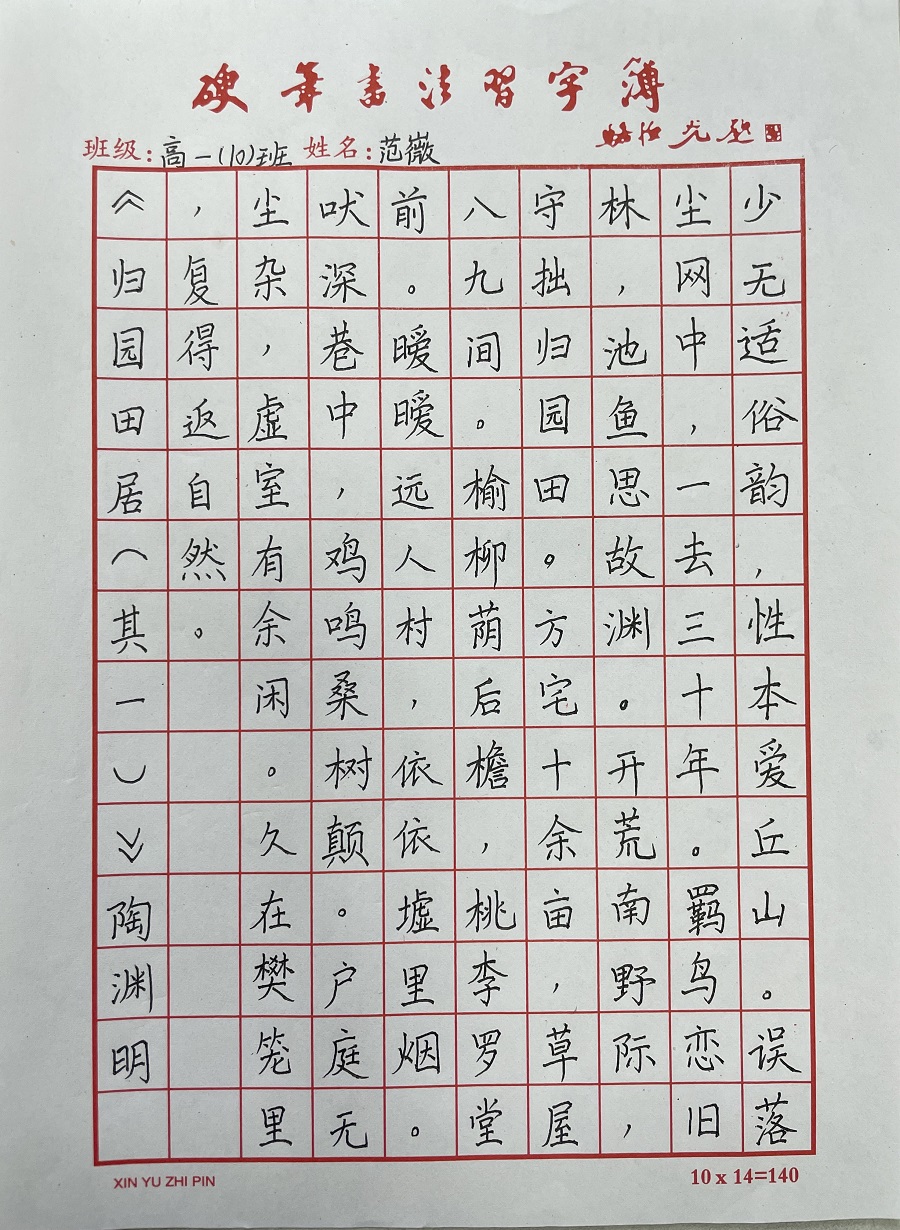 硬笔书法习字簿
班级：高一(10)班 姓名：范薇
少无适俗韵，性本爱丘山。误落
尘网中，一去三十年。羁鸟恋旧
林，池鱼思故渊。开荒南野际，
守拙归园田。方宅十余亩，草屋
八九间。榆柳荫后檐，桃李罗堂
前。暧暧远人村，依依墟里烟。
吠深巷中，鸡鸣桑树颠。户庭无
尘杂，虚室有余闲。久在樊笼里
，复得返自然。
《归园田居（其一）》陶渊明
XIN YU ZHI PIN
10 x 14=140